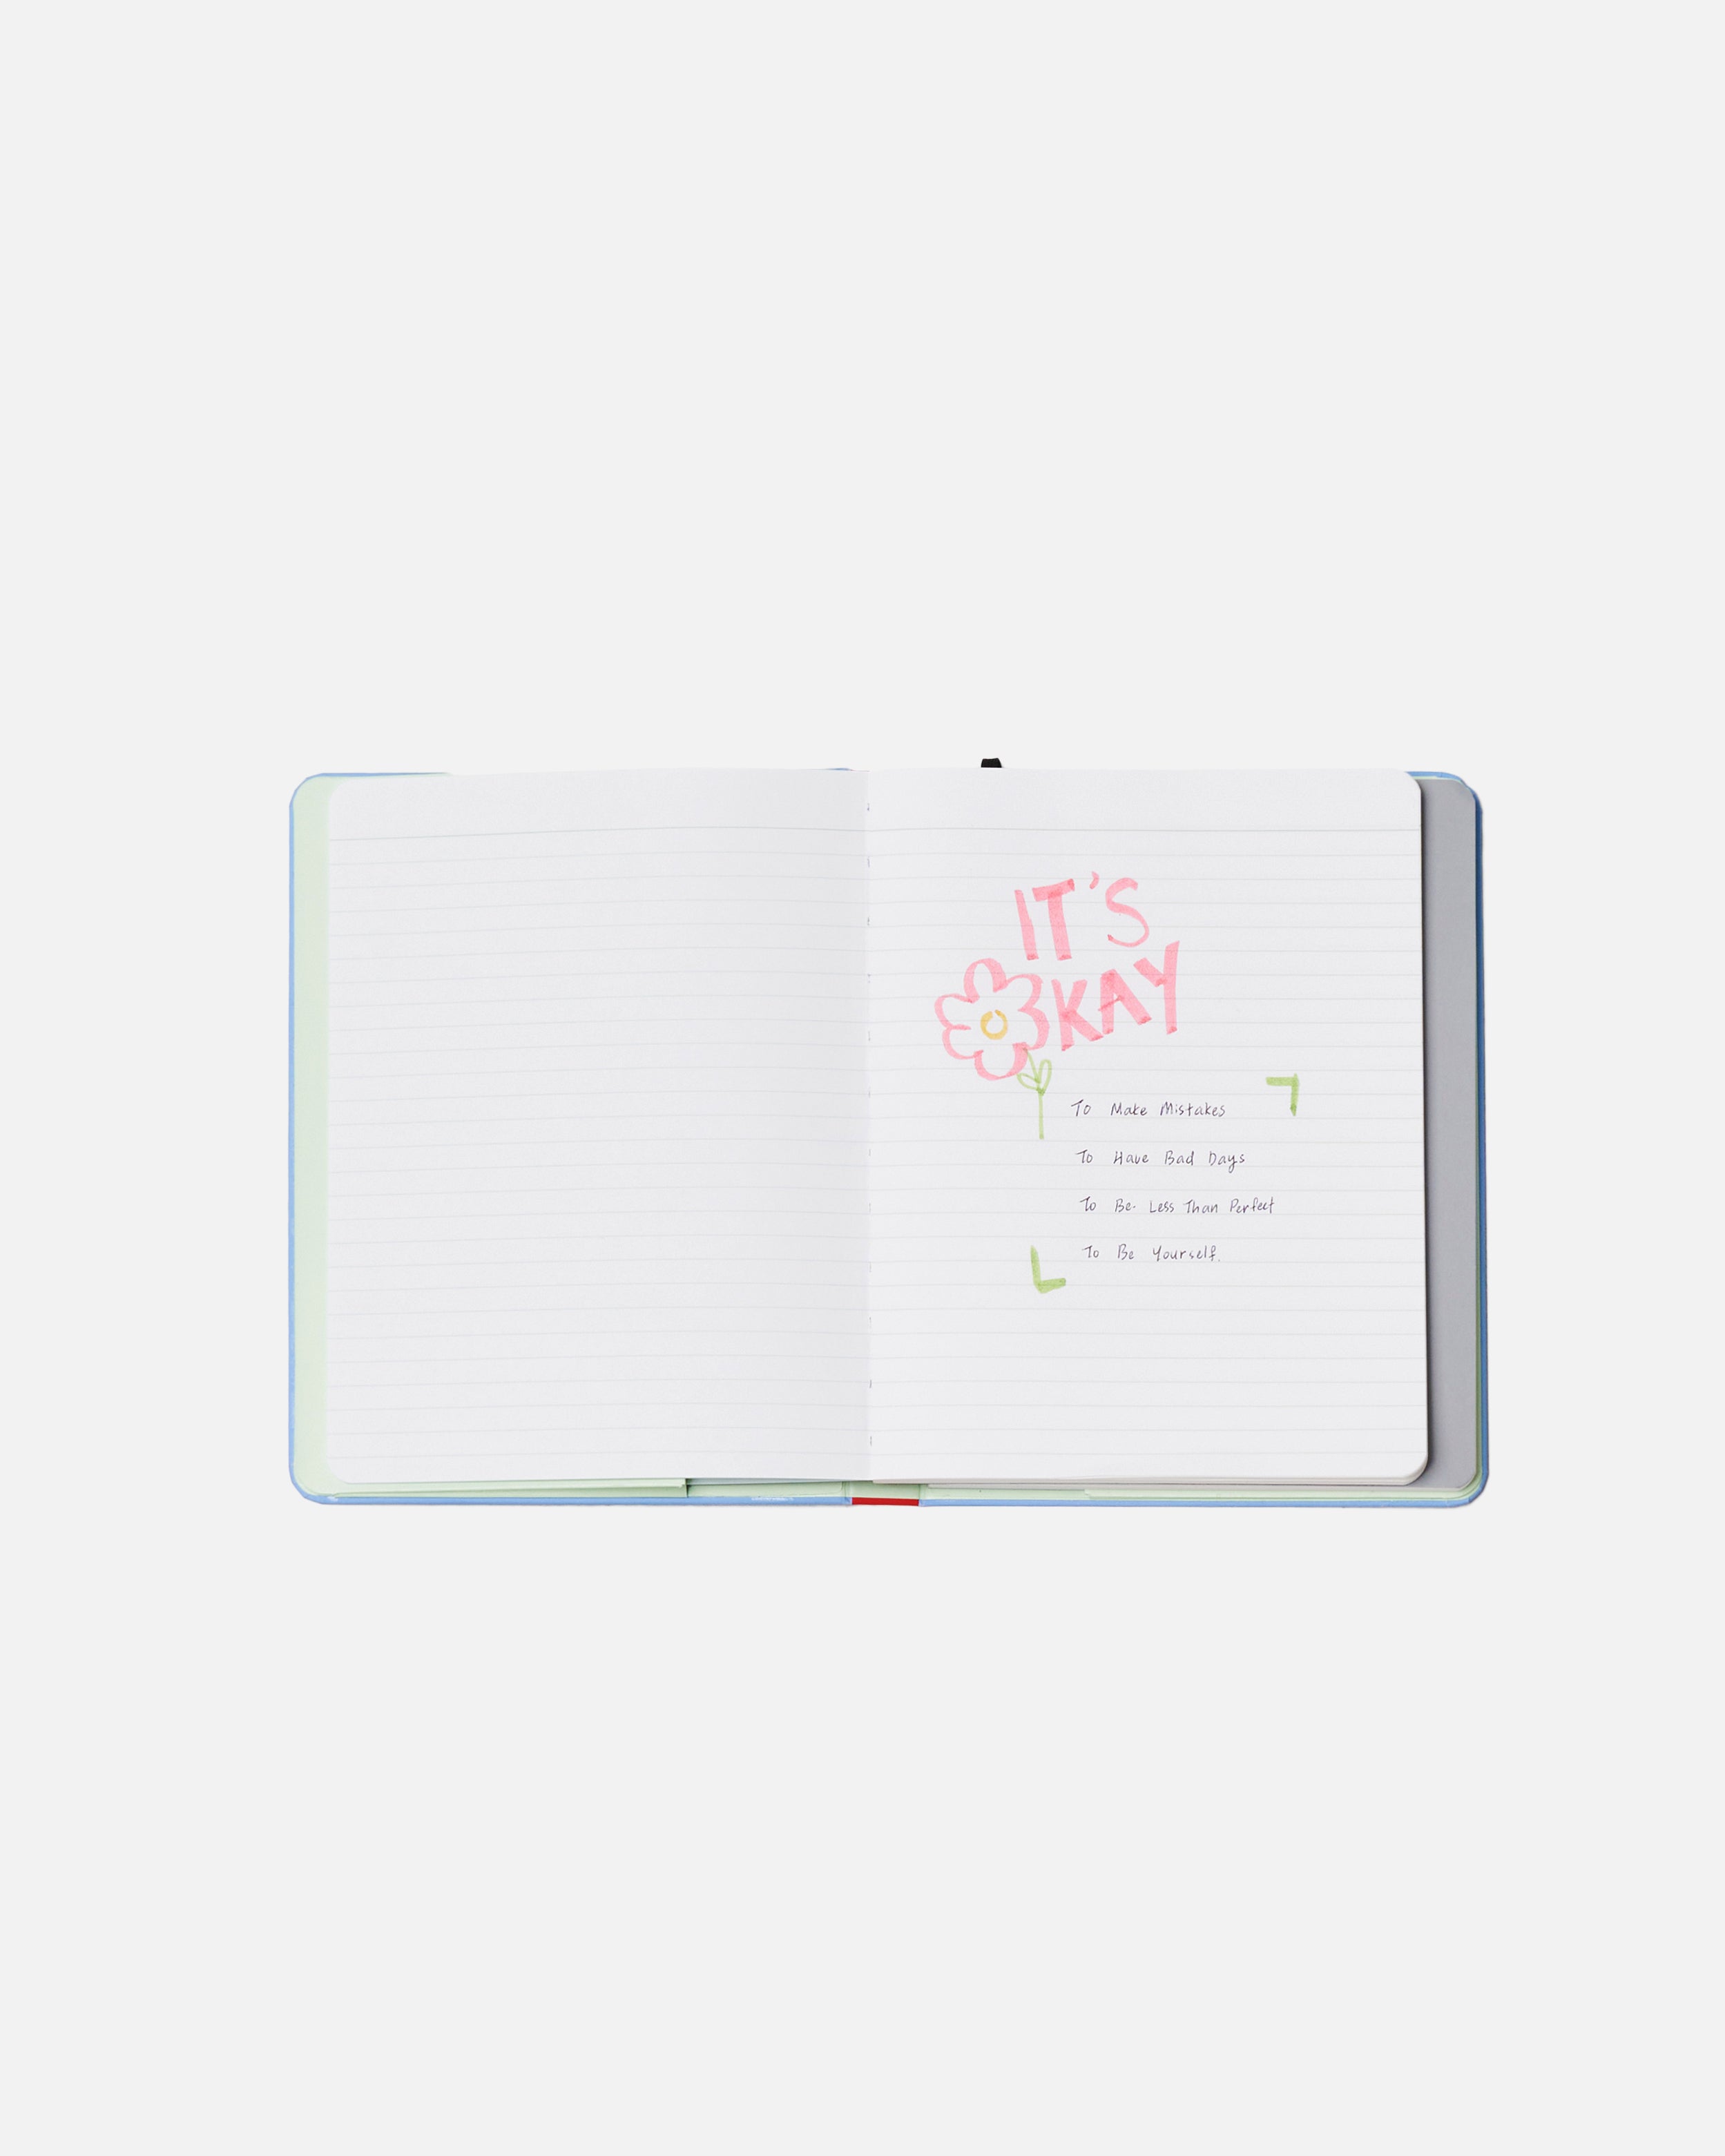 IT'S
OKAY
To Make Mistakes
To Have Bad Days
To Be Less Than Perfect
To Be Yourself.